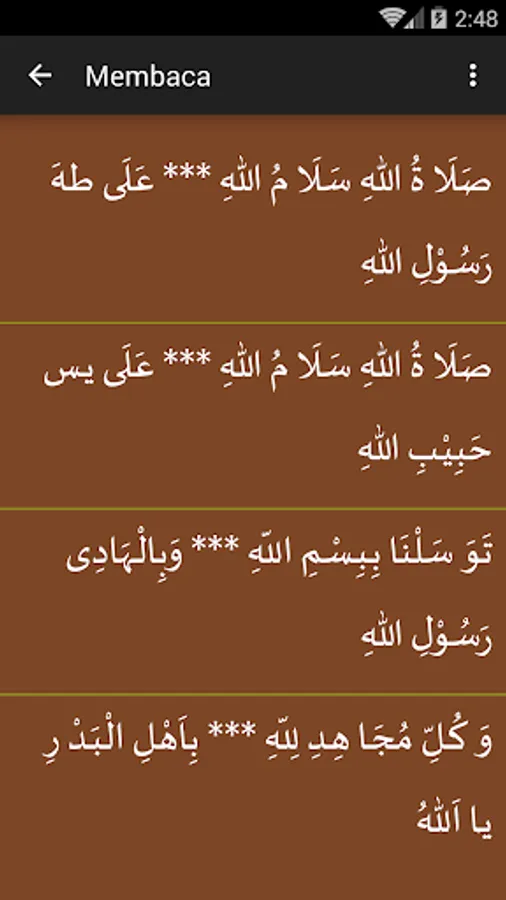 2:48
Membaca
صَلَا ةُ اللهِ سَلَا مُ اللهِ *** عَلَى طهَ
رَسُوْلِ اللهِ
صَلَا ةُ اللهِ سَلَا مُ اللهِ *** عَلَى يس
حَبِيْبِ اللهِ
تَوَ سَلْنَا بِبِسْمِ اللّهِ *** وَبِالْهَادِى
رَسُوْلِ اللهِ
وَ كُلِّ مُجَا هِدِ لِلّهِ *** بِاَهْلِ الْبَدْ رِ
يا اَللهُ